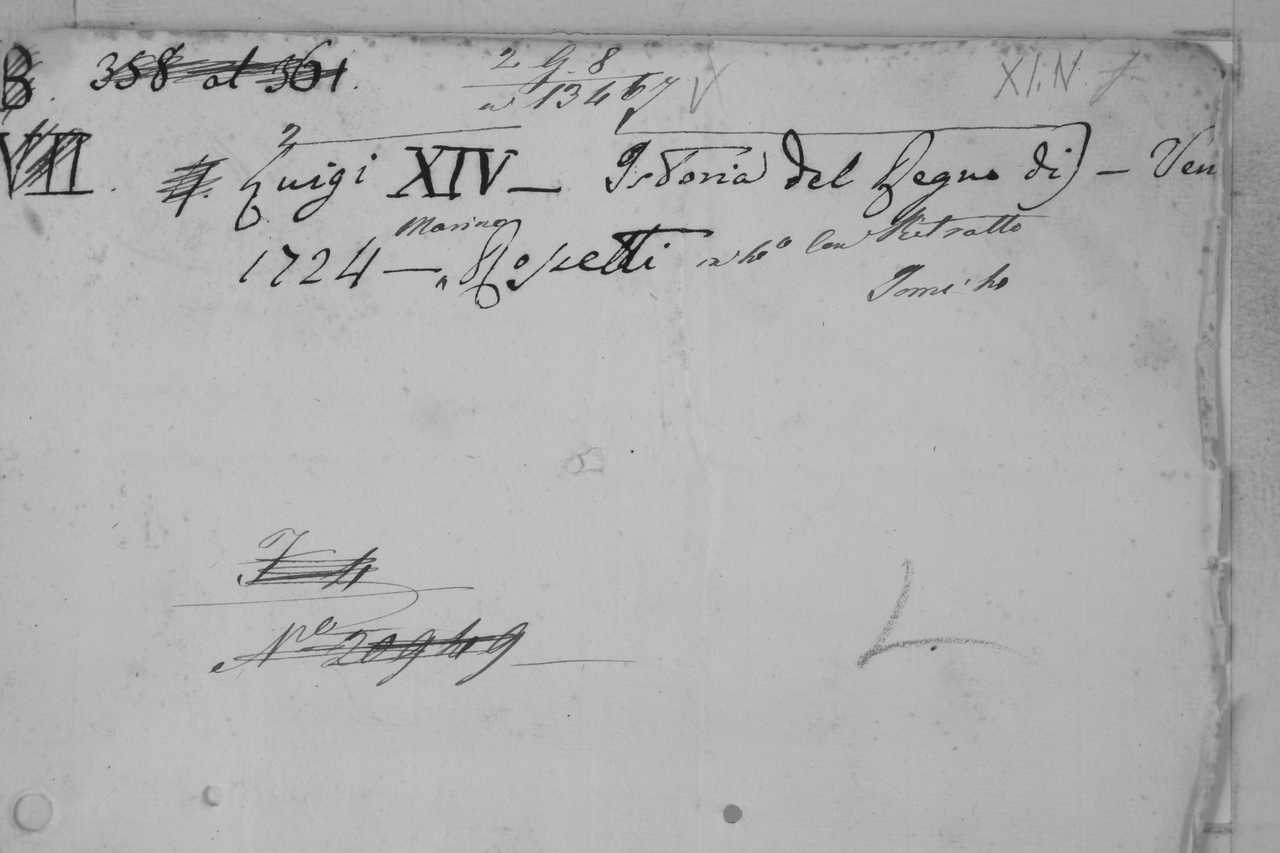 B. 358 al 361.
2. G. 8
13467
XI.N.
VII. Luigi XIV — Istoria del Regno di) — Ven
Marino
1724 — Rossetti in 4º Con Ritratto
Tomi 4
N.º 20949
L.